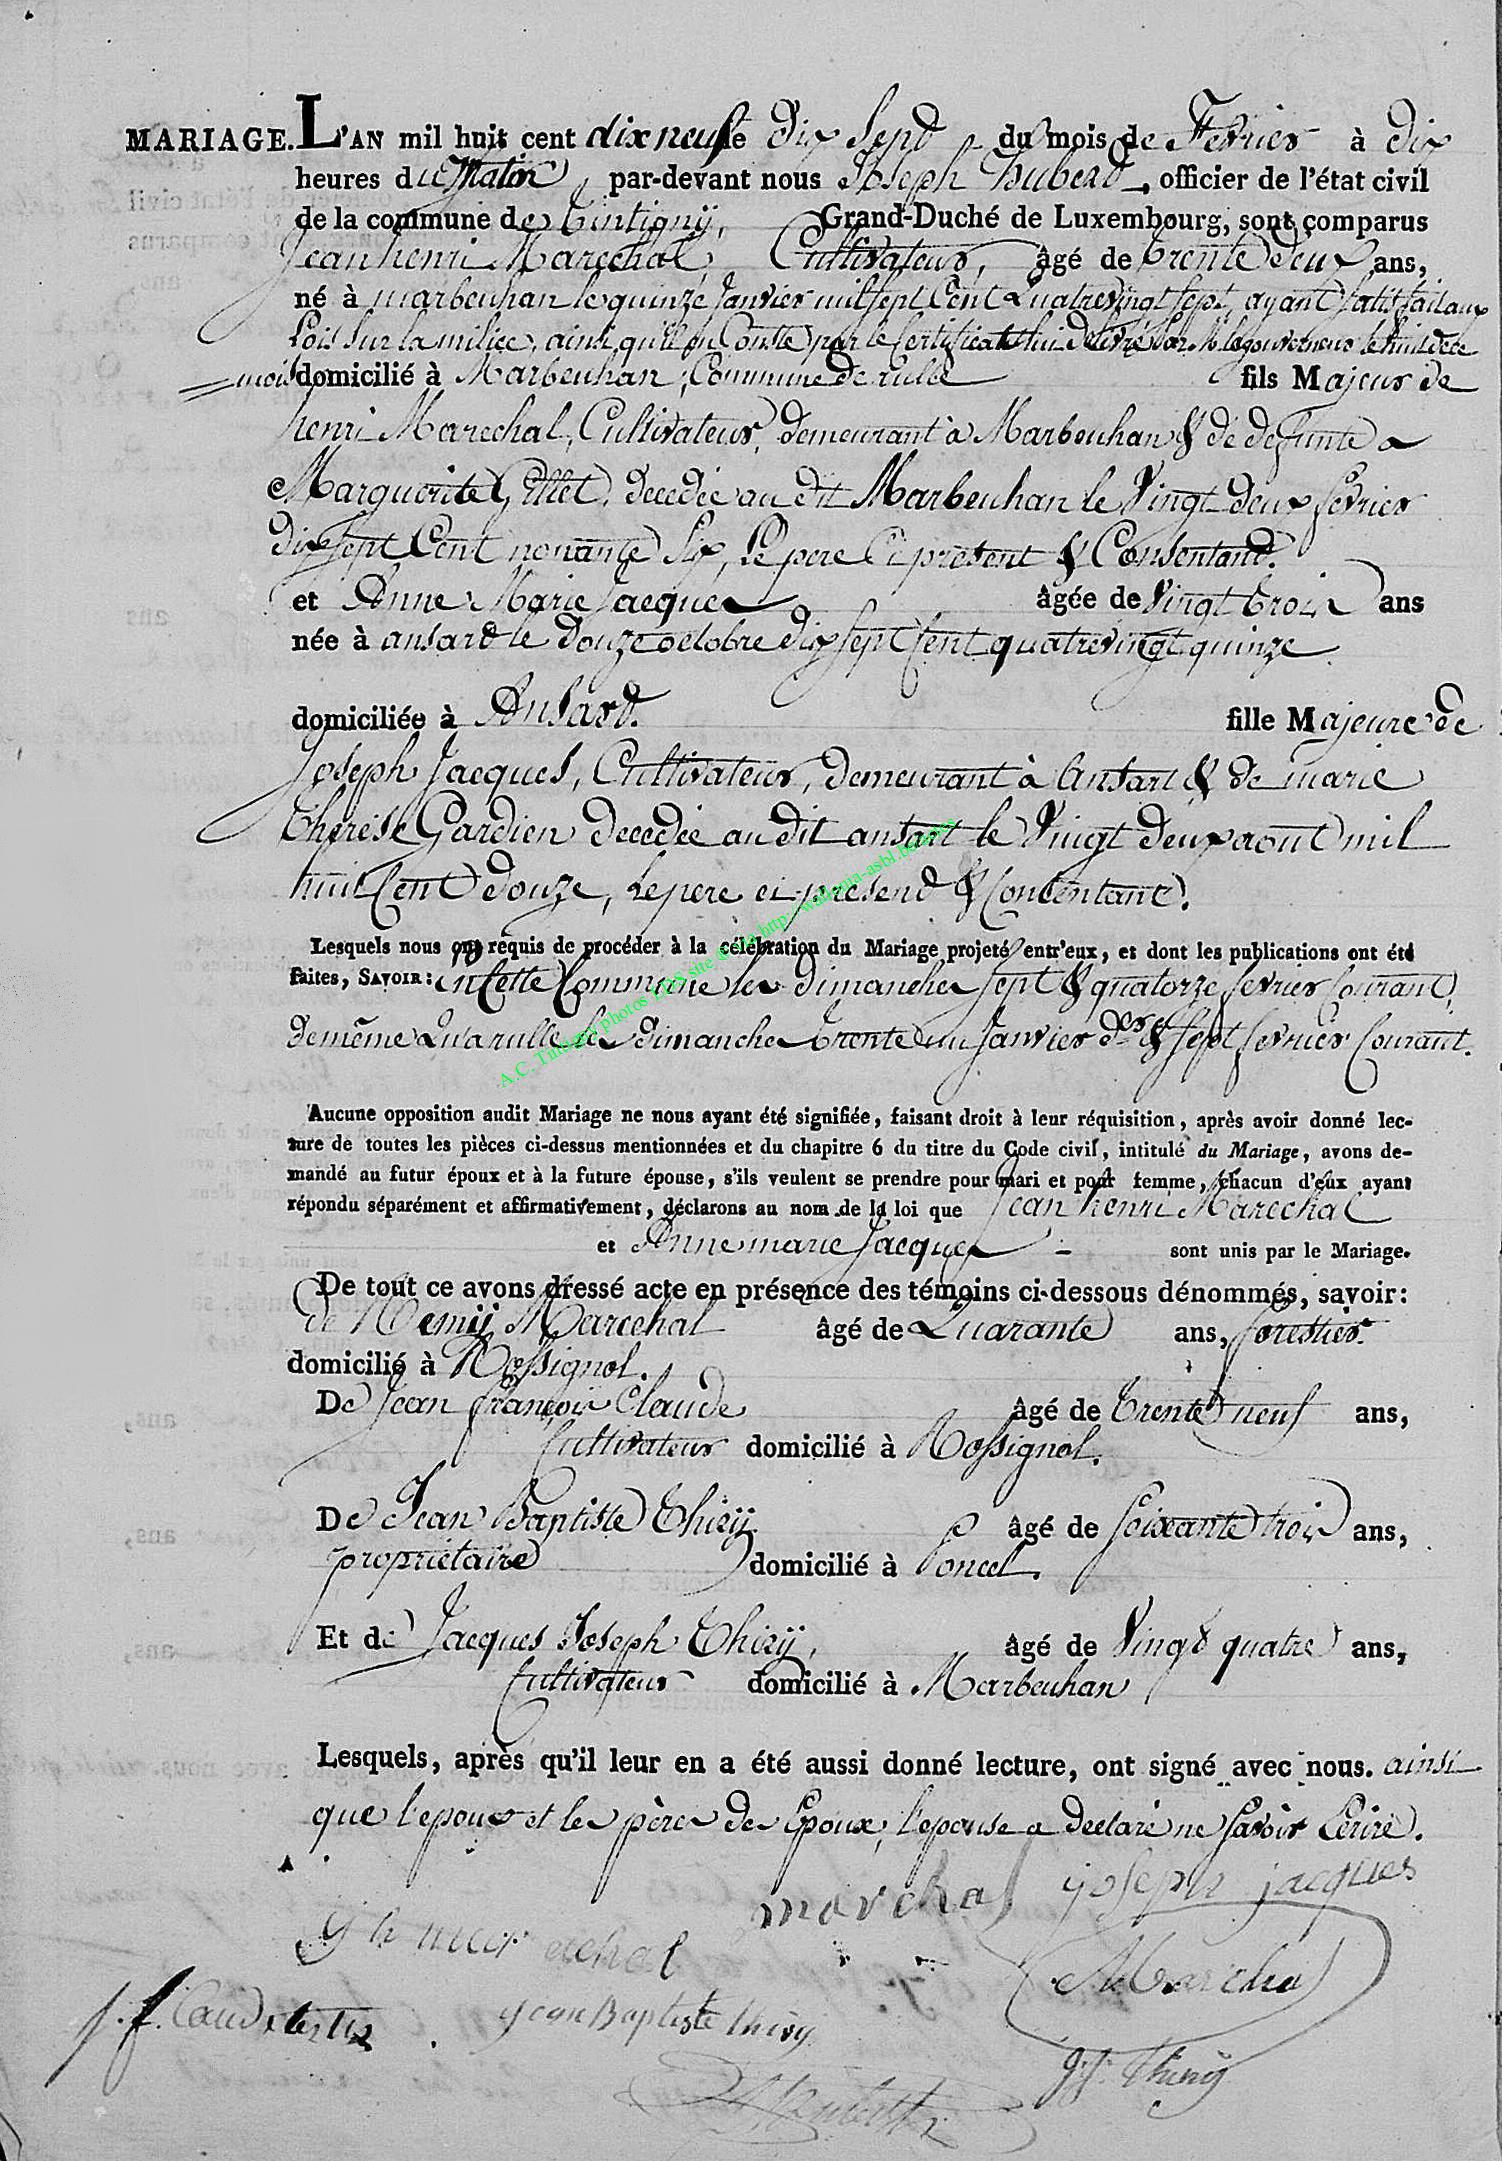 MARIAGE. L'AN mil huit cent dix neuf le dix Sept du mois de Fevrier à dix
heures du Matin, par-devant nous Joseph hubert, officier de l'état civil
de la commune de tintignÿ, Grand-Duché de Luxembourg, sont comparus
Jean henri Marechal, Cultivateur, âgé de trente deux ans,
né à marbeuhan le quinze Janvier mil sept Cent Quatre vingt sept, ayant satisfait aux
Lois sur la milice, ainsi qu'il en Conste par le Certificat lui delivré par le gouverneur le huit de ce
mois domicilié à Marbeuhan, Commune de rulle fils Majeur de
henri Marechal, Cultivateur, demeurant à Marbeuhan & de defunte
Marguerite Gillet, decedée au dit Marbeuhan le Vingt deux fevrier
dix sept Cent nonante Six, Le pere Ci present & Consentand.
et Anne Marie Jacques âgée de Vingt trois ans
née à ansard le douze octobre dix sept Cent quatre vingt quinze
domiciliée à Ansard. fille Majeure de
Joseph Jacques, Cultivateur, demeurant à Ansart & de marie
therése Gardien decedée au dit ansart le Vingt deux aout mil
huit Cent douze, le pere ci present & Consentant.
Lesquels nous ont requis de procéder à la célébration du Mariage projeté entr'eux, et dont les publications ont été
faites, SAVOIR: en Cette Commune les dimanches sept & quatorze fevrier Courant,
de même Qu'a rulle les dimanches trente un Janvier der & sept fevrier Courant.
A.C. Tintigny photos LDS site @ via http://wallonia-asbl.be
Aucune opposition audit Mariage ne nous ayant été signifiée, faisant droit à leur réquisition, après avoir donné lec-
ture de toutes les pièces ci-dessus mentionnées et du chapitre 6 du titre du Code civil, intitulé du Mariage, avons de-
mandé au futur époux et à la future épouse, s'ils veulent se prendre pour mari et pour femme, chacun d'eux ayant
répondu séparément et affirmativement, déclarons au nom de la loi que Jean henri Marechal
et Anne marie Jacques sont unis par le Mariage.
De tout ce avons dressé acte en présence des témoins ci-dessous dénommés, savoir:
de Remÿ Marechal âgé de Quarante ans, forestier.
domicilié à Rossignol.
De Jean François Claude âgé de trente neuf ans,
Cultivateur domicilié à Rossignol.
De Jean Baptiste thirÿ âgé de Soixante trois ans,
propriétaire domicilié à Poncel.
Et de Jacques Joseph thirÿ, âgé de Vingt quatre ans,
Cultivateur domicilié à Marbeuhan
Lesquels, après qu'il leur en a été aussi donné lecture, ont signé avec nous. ainsi
que l'epoux et les pères des Epoux, l'epouse a declaré ne Savoir Ecrire.
marchal yoseph jacques
y h marechal
R Marchal
j. f. Claude
yean Baptiste thiry
J.J. Thiry